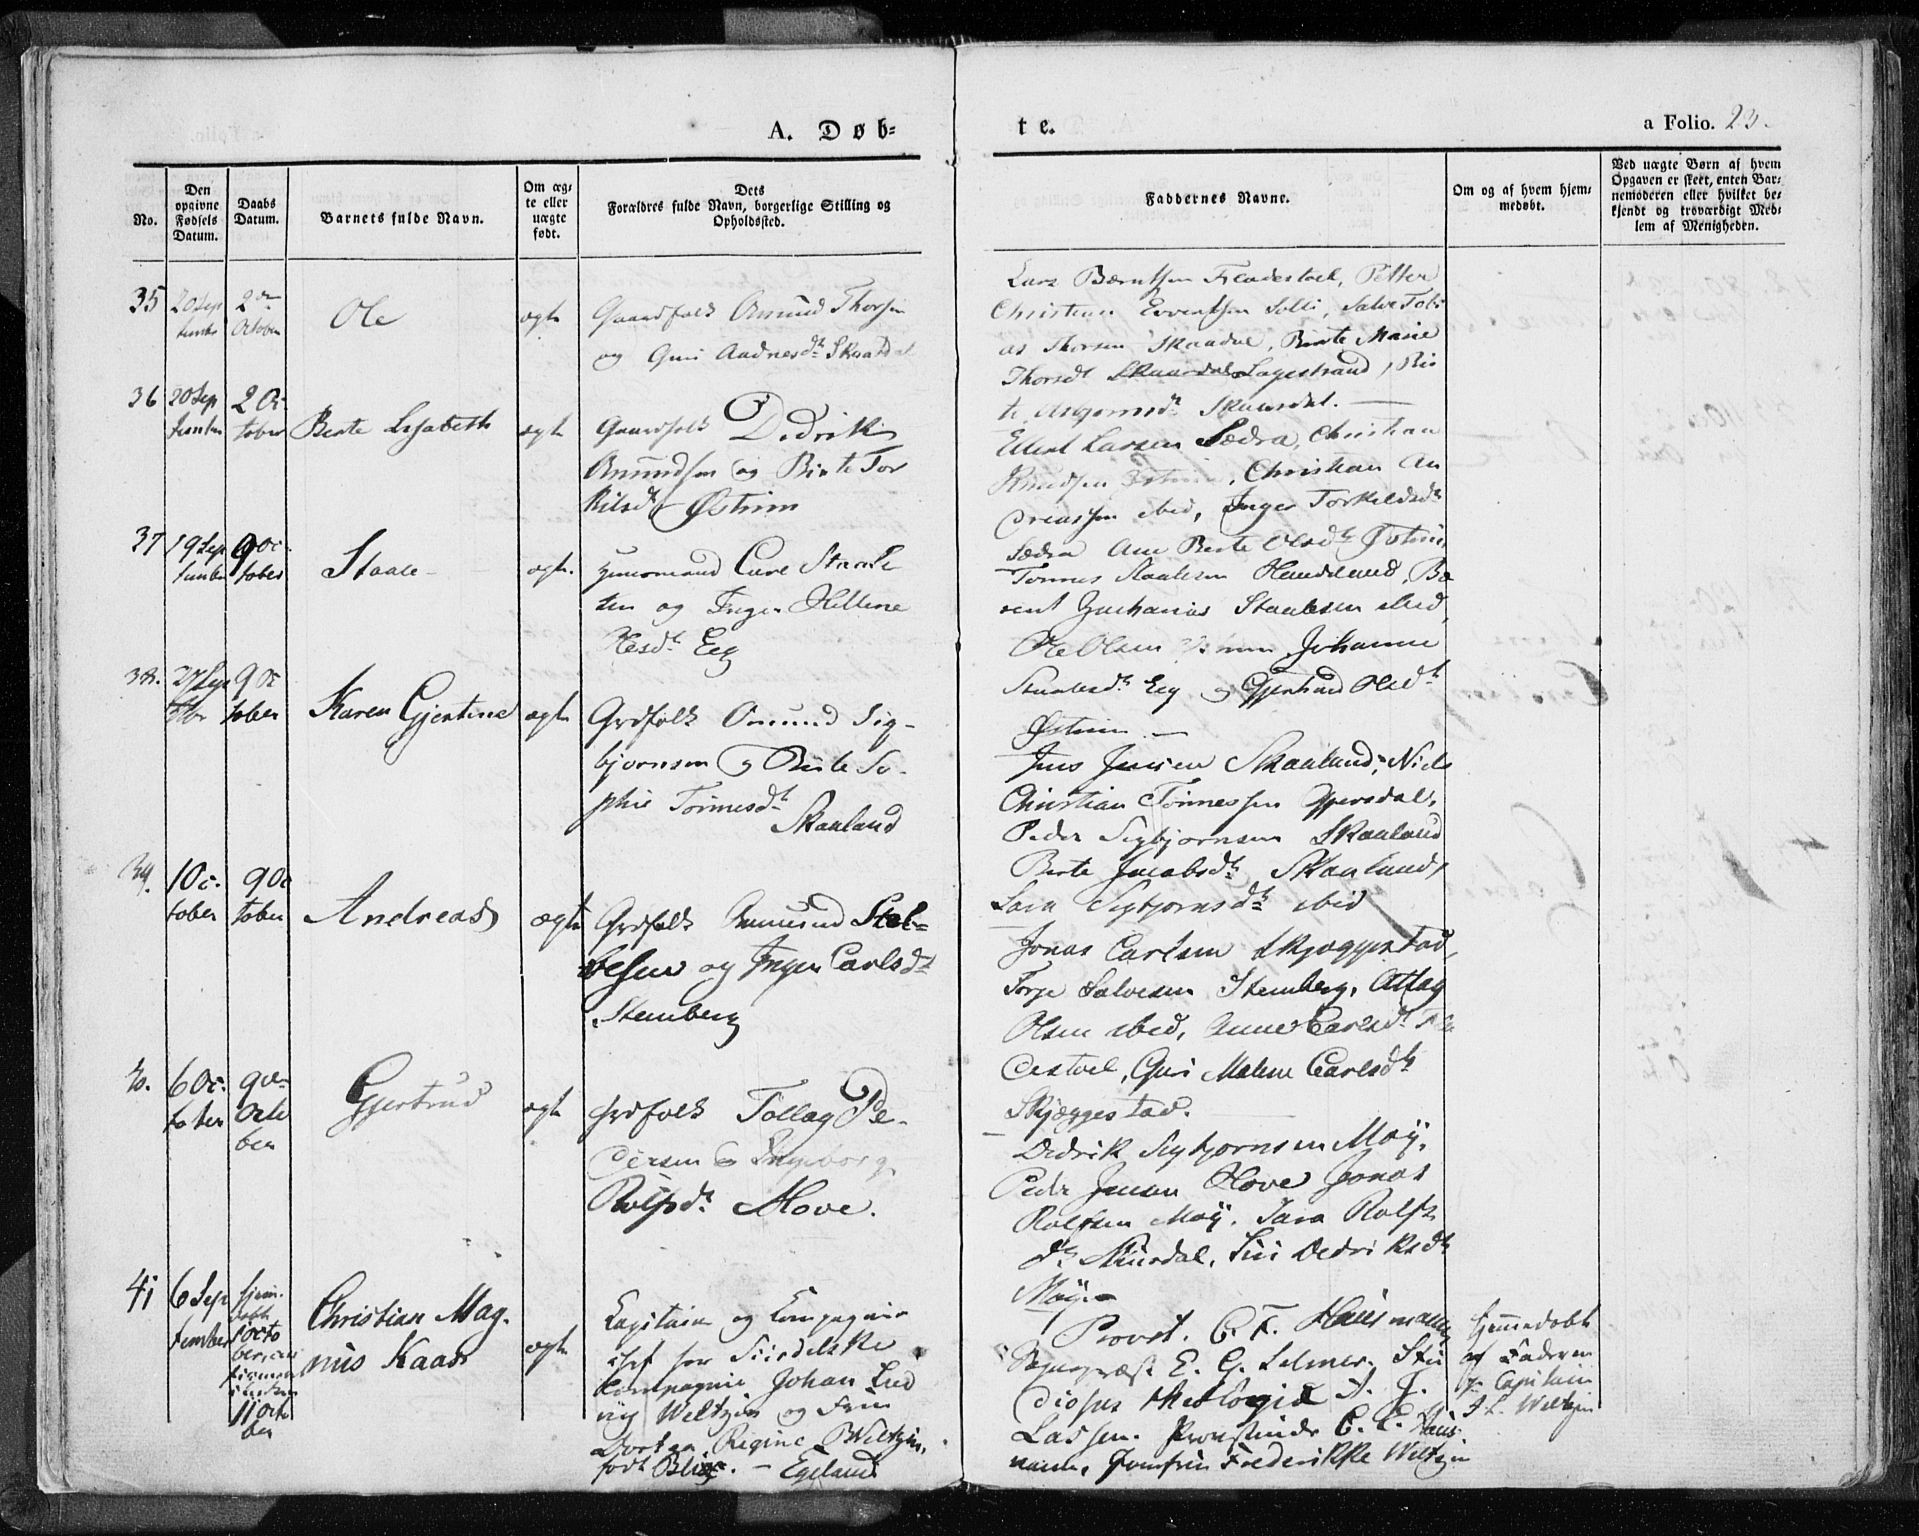 A. Døb-
te.
a Folio. 23.
No.
Den opgivne Fødsels Datum.
Daabs Datum.
Barnets fulde Navn.
Om ægte eller uægte født.
Dets Forældres fulde Navn, borgerlige Stilling og Opholdssted.
Faddernes Navne.
Om og af hvem hjemmedøbt.
Ved uægte Børn af hvem Opgaven er skeet, enten Barnemoderen eller hvilket bekjendt og troværdigt Medlem af Menigheden.
35
20 Sep
tember
2den
October
Ole
ægte
Gaardfolk Omund Thorsen
og Guri Aadnesdt
Lars Berntsen Fladestoel, Petter
Christian Evertsen Solli, Salve Tobi
as Thorsen Skaadal, Berte Marie
Thorsdt Lagestrand, Bir
te Asbjornsdt
36
20 Sep
tember
2 Oc
tober
Berte Lisabeth
ægte
Gaardfolk Didrik
Omundsen og Birte Tor
kilsdt Østrim
Eilert Larsen Sædra, Christian
Knudsen, Christian An
dreassen ibid, Inger Torkeldsdt
Sædra Ane Berte Olsdt Østrim
37
19 Sep
tember
9 Oc
tober
Staale
ægte.
Carl Staale
sen og Inger Hellene
Olesdt Eeg
Tonnes Staalesen Haddeland, Be
rent Zacharias Staalesen ibid,
Ole Olsen Johanne
Staalesdt Eeg og Gjerhard Olsdt
Østrim
38.
27 Sep
tbr
9 Oc
tober
Karen Gjertine
ægte
Grdfolk Omund Sig-
bjornsen og Birte So-
phie Tonnesdt
Skaaland
Jens Jensen Skaaland, Niels
Christian Tonnessen Gjersdal,
Peder Sigbjornsen Skaaland
Berte Jacobsdt Skaaland,
Sara Sigbjornsdt ibid
39.
1 Oc-
tober
9 Oc
tober
Andreas
ægte
Grdfolk Ommund Stel-
og Inger Carlsdt
Stemberg
Jonas Carlsen Skjæggestad,
Torje Salvesen Stemberg, Attlag
Olsen ibid, Anne Carlsdt Fla
destoel, Guri Malene Carlsdt
Skjæggestad.
40.
6 Oc-
tober
9de
Octo
ber
Gjertrud
ægte
Grdfolk Tollag Pe-
dersen og Ingeborg
Rolfsdt Move.
Didrik Sigbjornsen Moÿ,
Peder Jensen Hove Jonas
Rolfsen Moÿ, Sara Rolfs
dt Skursdal, Siri Dedriksdt
Moÿ
41
6 Sep
tember
hjem-
døbt
1 Octo
ber, con
firmeret
i Kirken
11 Octo
ber
Christian Mag-
nus Kaas
ægte
Capitain og Compagnie
chef for Siredalske
Compagnie Johan Lud
vig Weltzin og Frue
Dortea Regine Weltzin,
født Blix. - Egeland
Provst. C. F. Hansmann,
Sognepræst E. G. Selmer. Stu
diosus theologiæ A. J.
Lassen. Provstinde C. E. Haus
mann, Jomfru Frederikke Weltzin
hjemmedøbt
af Faderen
Capitain
J. L. Weltzin